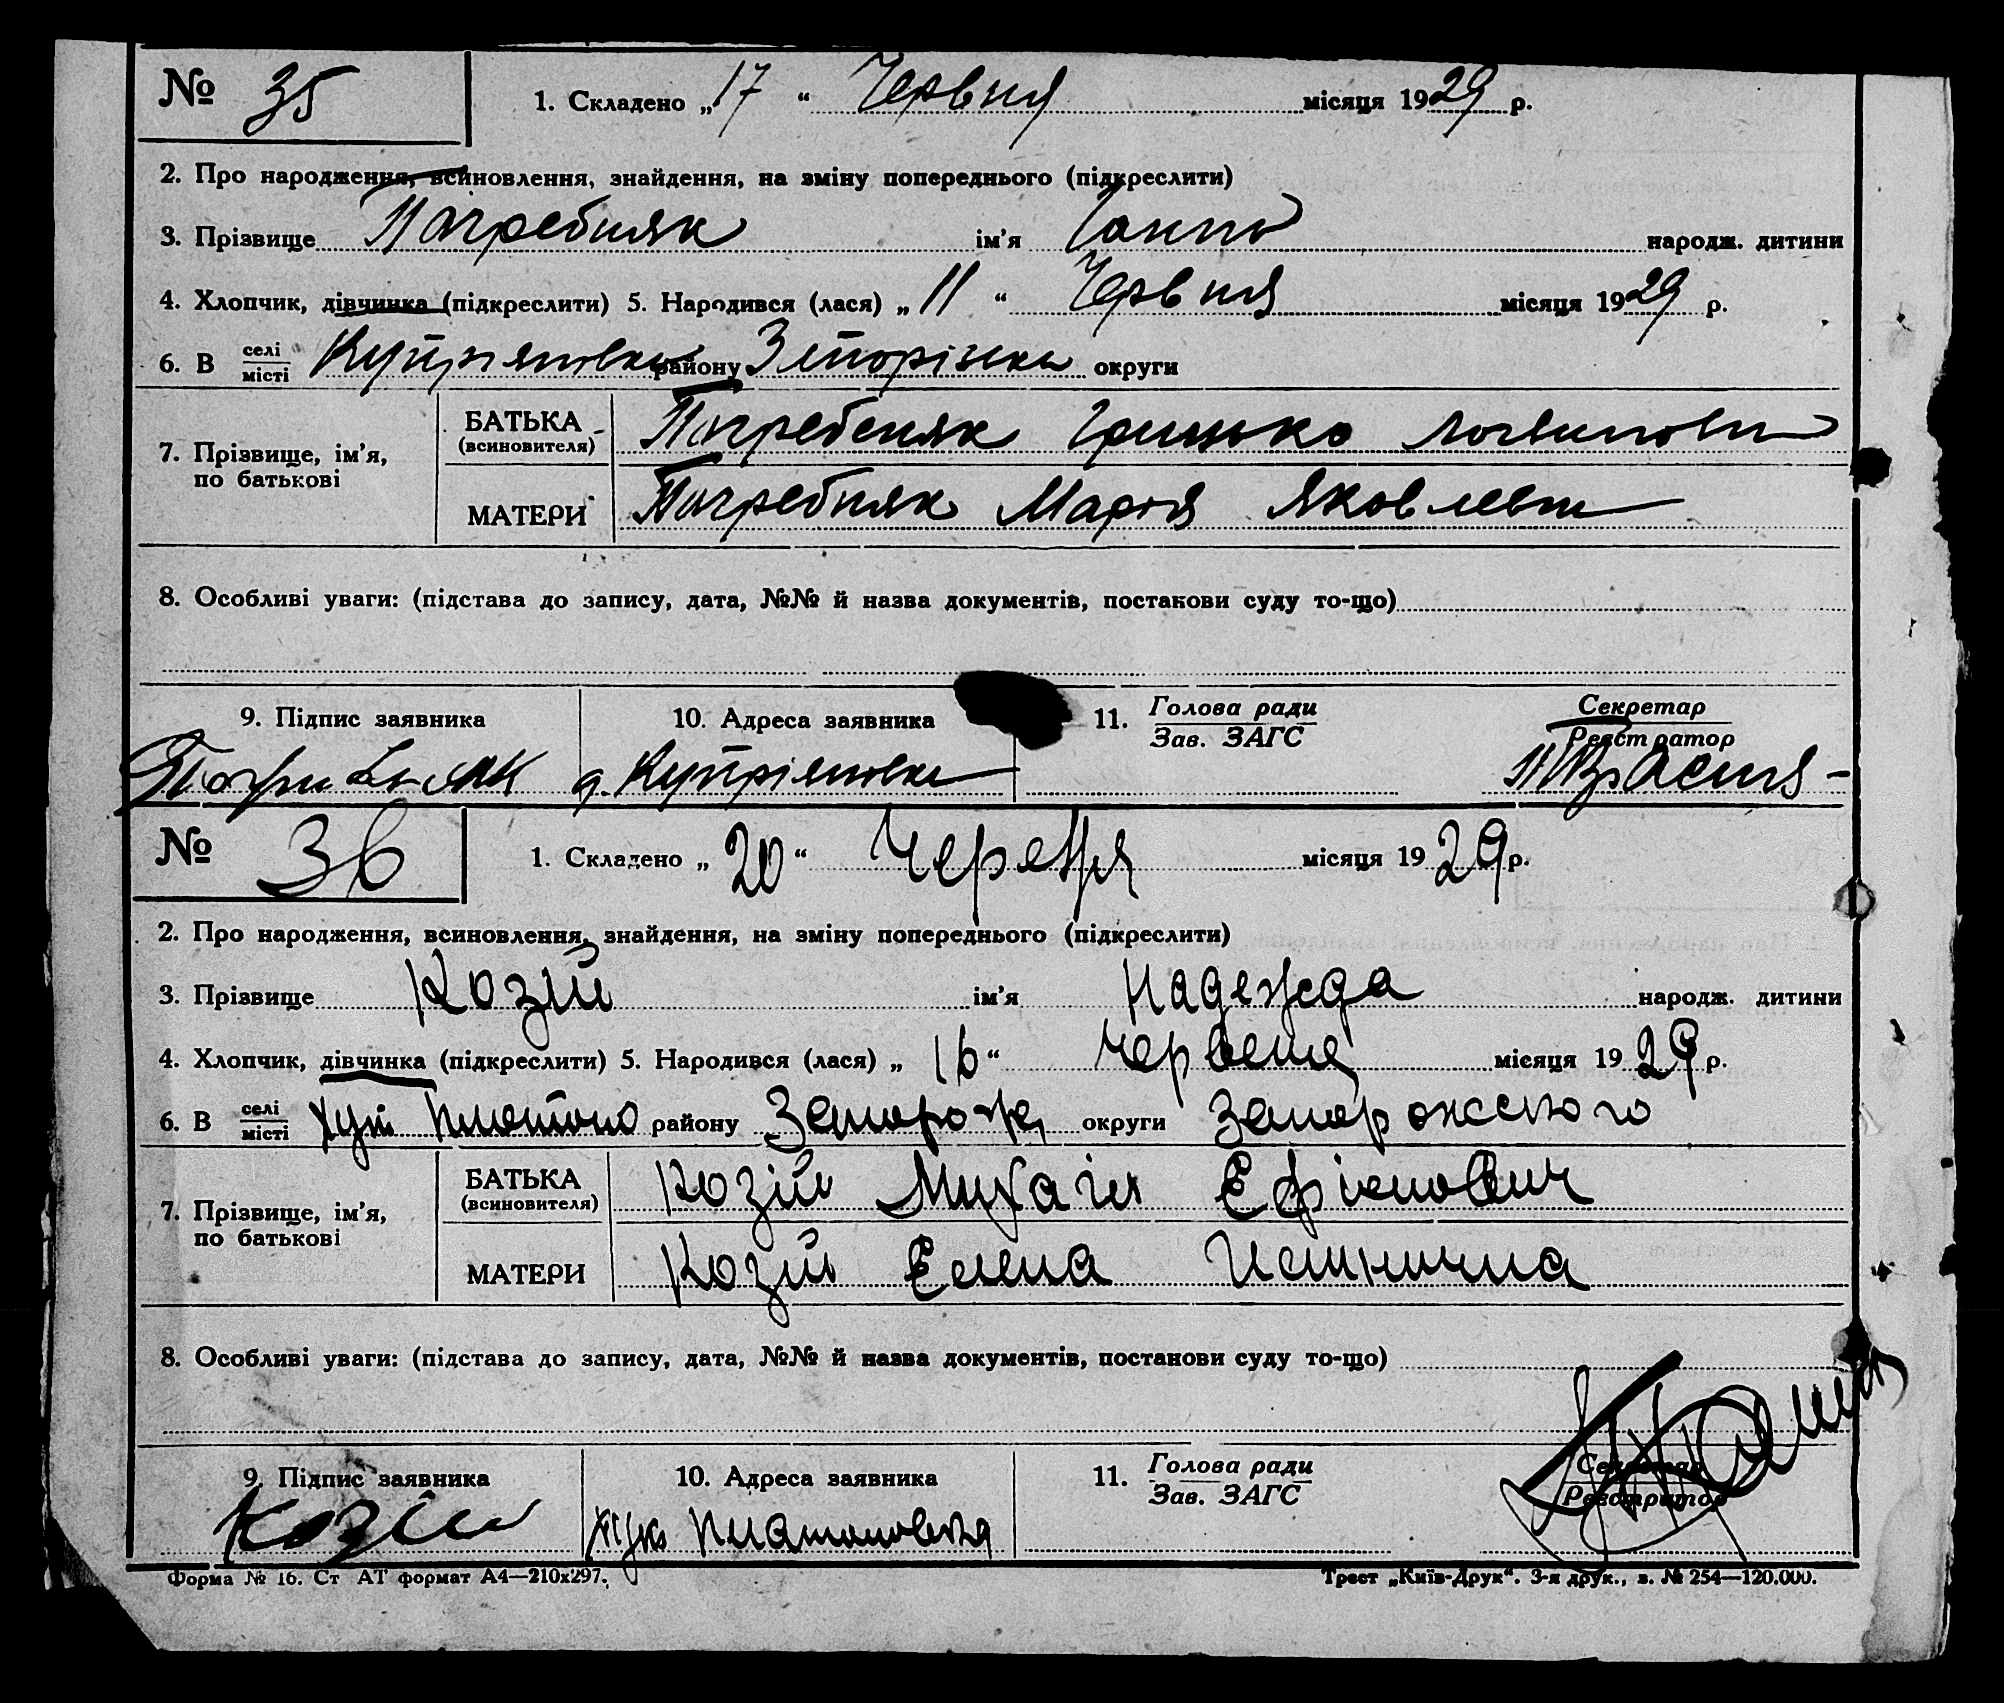 № 35 1. Складено „17“ Червня місяця 1929 р.
2. Про народження, всиновлення, знайдення, на зміну попереднього (підкреслити)
3. Прізвище Погребняк ім'я Ганна народж. дитини
4. Хлопчик, дівчинка (підкреслити) 5. Народився (лася) „11“ Червня місяця 1929 р.
6. В селі місті Купріяновка району округи
7. Прізвище, ім'я, по батькові
БАТЬКА (всиновителя) Погребеняк Грицько Логвинович
МАТЕРИ Погребняк Марія Яковлевна
8. Особливі уваги: (підстава до запису, дата, №№ й назва документів, постакови суду то-що)
9. Підпис заявника 10. Адреса заявника 11. Голова ради Зав. ЗАГС Секретар Реєстратор
д. Купріяновка
№ 36 1. Складено „20“ місяця 1929 р.
2. Про народження, всиновлення, знайдення, на зміну попереднього (підкреслити)
3. Прізвище Козій ім'я Надежда народж. дитини
4. Хлопчик, дівчинка (підкреслити) 5. Народився (лася) „16“ червеня місяця 1929 р.
6. В селі місті Хут району округи Запорожского
7. Прізвище, ім'я, по батькові
БАТЬКА (всиновителя) Козій Михаіл Ефімович
МАТЕРИ Козій Елена
8. Особливі уваги: (підстава до запису, дата, №№ й назва документів, постанови суду то-що)
9. Підпис заявника 10. Адреса заявника 11. Голова ради Зав. ЗАГС Секретар Реєстратор
Козій хут Платоновка
Форма № 16. Ст АТ формат А4—210х297. Трест „Київ-Друк“. 3-я друк., з. № 254—120.000.